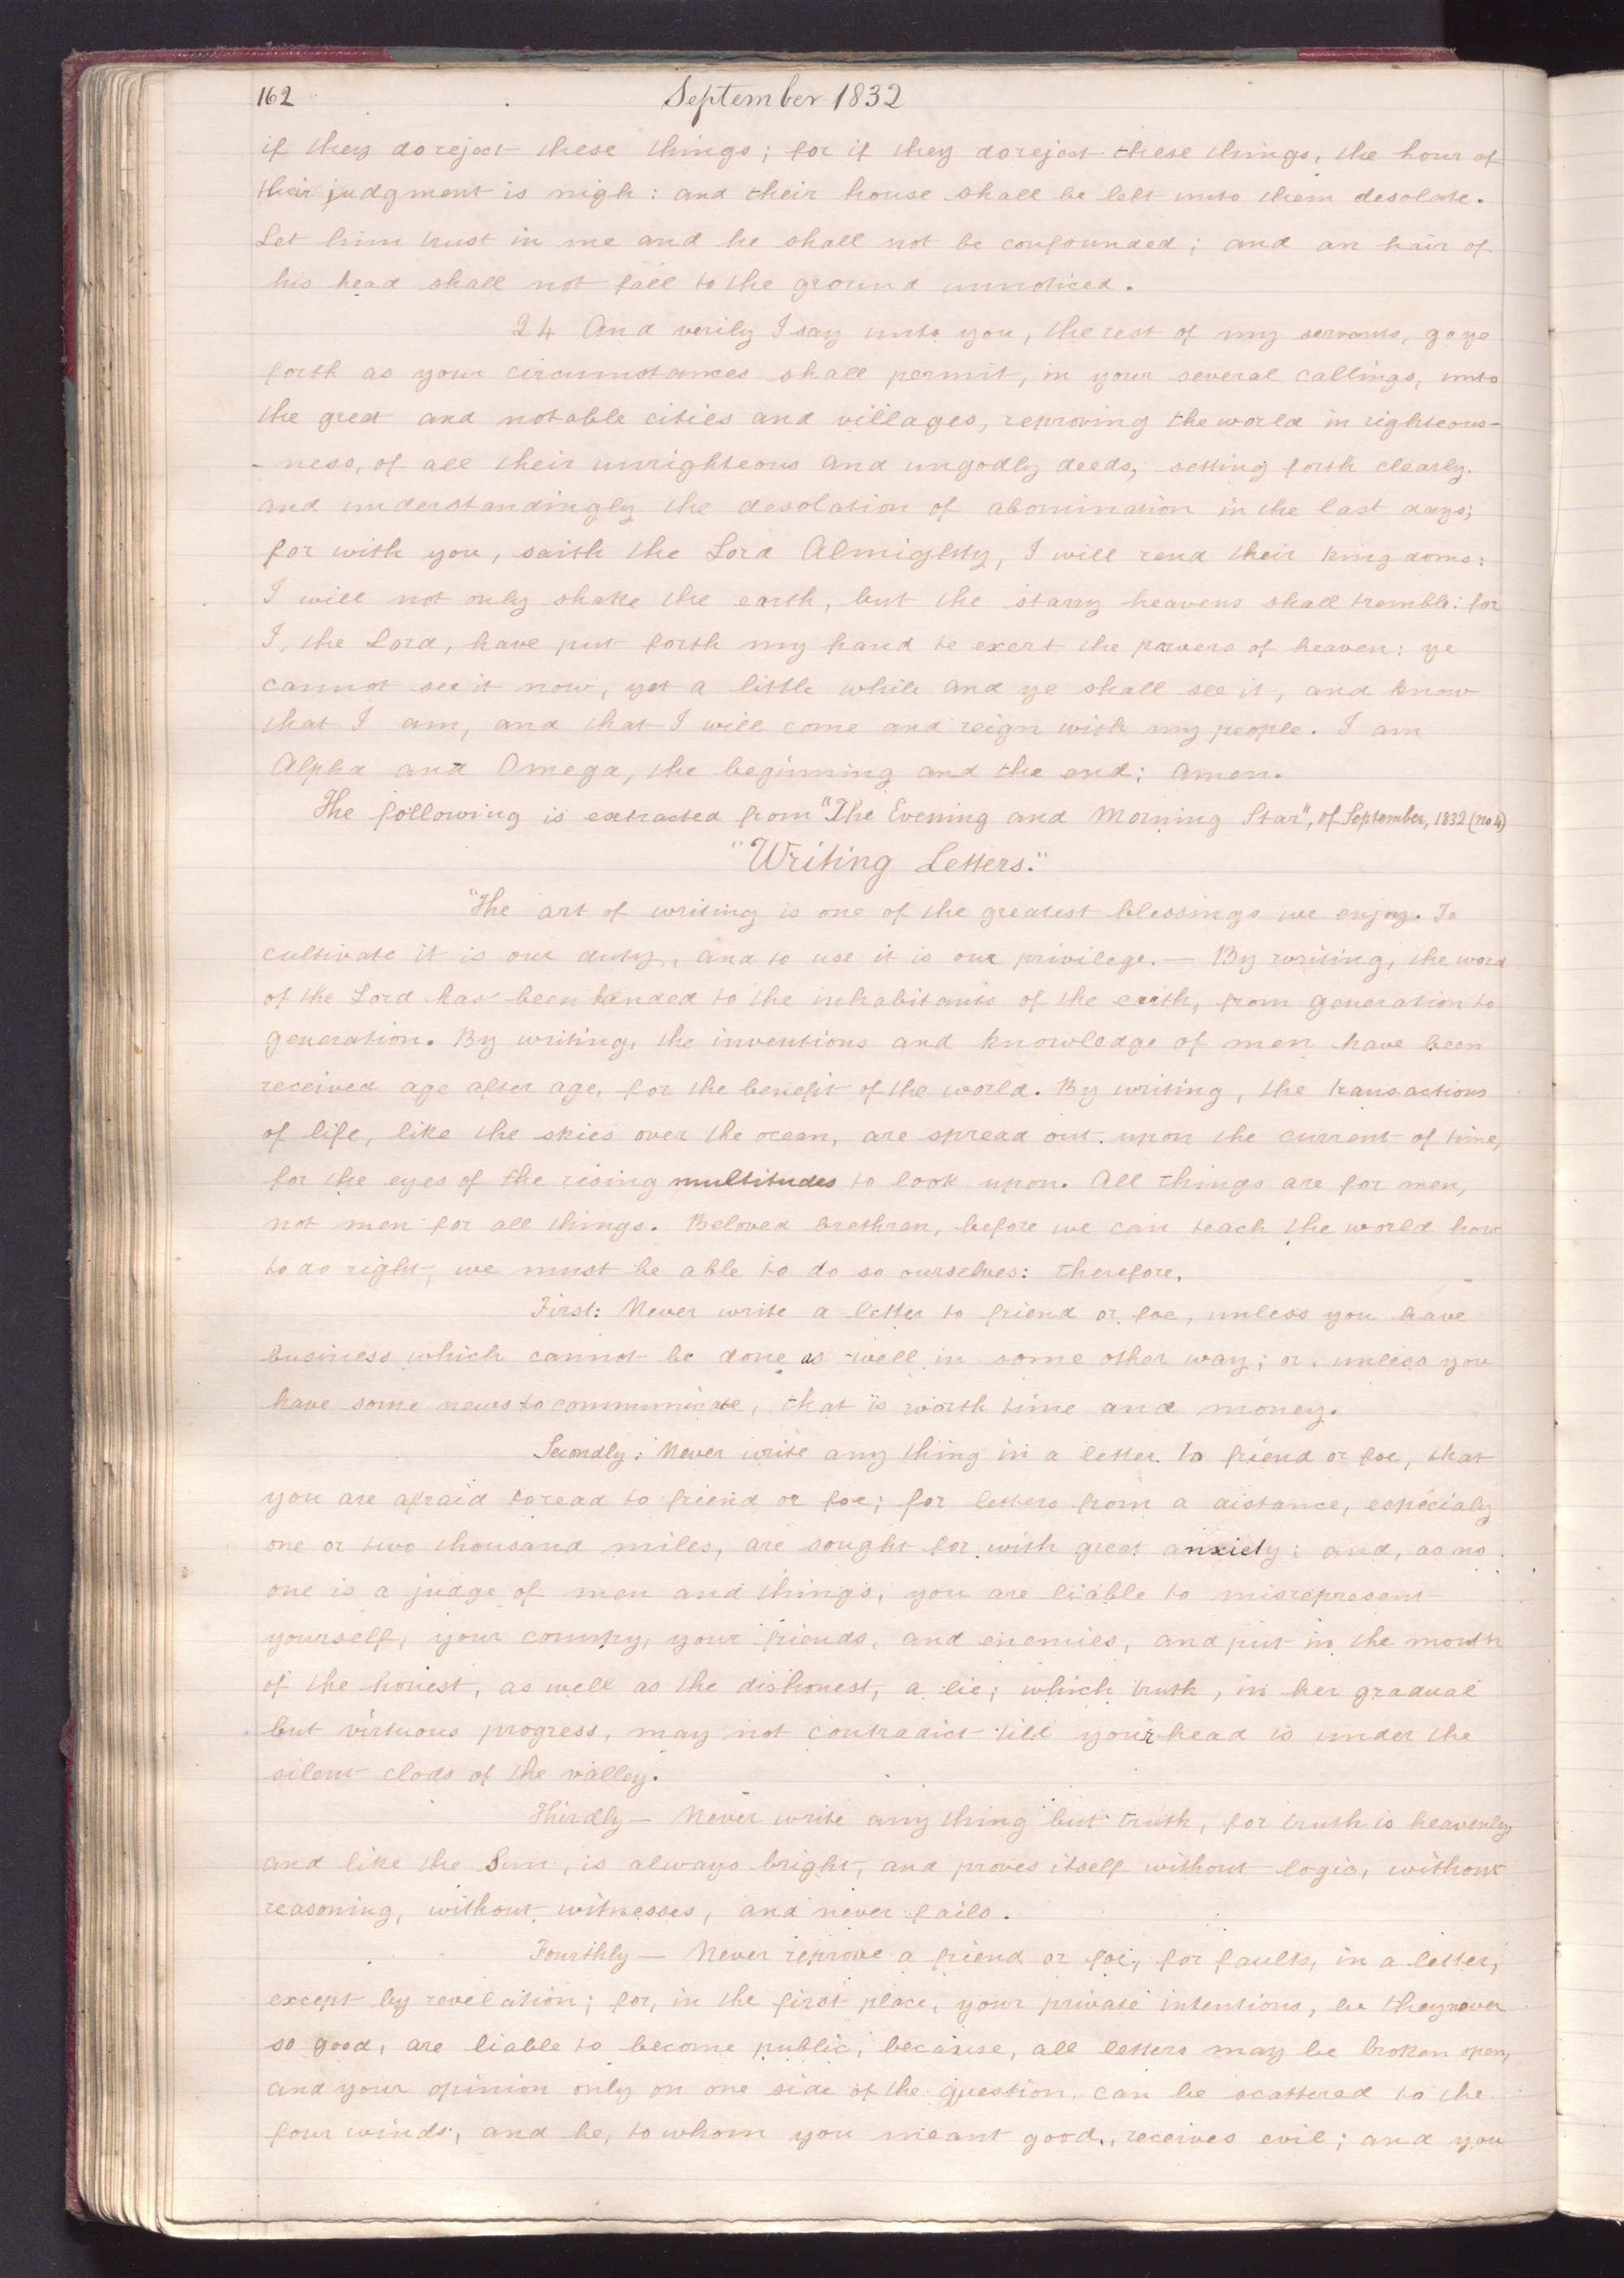 162
September 1832
if they do reject these things; for if they do reject these things, the hour of
their judgment is nigh: and their house shall be left unto them desolate.
Let him trust in me and he shall not be confounded; and an hair of
his head shall not fall to the ground unnoticed.
24 And verily I say unto you, the rest of my servants, go ye
forth as your circumstances shall permit, in your several callings, unto
the great and notable cities and villages, reproving the world in righteous-
-ness, of all their unrighteous and ungodly deeds, setting forth clearly.
and understandingly the desolation of abomination in the last days;
for with you, saith the Lord Almighty, I will rend their kingdoms:
I will not only shake the earth, but the starry heavens shall tremble: for
I, the Lord, have put forth my hand to exert the powers of heaven: ye
cannot see it now, yet a little while and ye shall see it, and know
that I am, and that I will come and reign with my people. I am
Alpha and Omega, the beginning and the end; Amen.
The following is extracted from "The Evening and Morning Star", of September, 1832 (no 4)
"Writing Letters."
"The art of writing is one of the greatest blessings we enjoy. To
cultivate it is our duty, and to use it is our privilege. — By writing, the word
of the Lord has been handed to the inhabitants of the earth, from generation to
generation. By writing, the inventions and knowledge of men have been
received age after age, for the benefit of the world. By writing, the transactions
of life, like the skies over the ocean, are spread out upon the current of time,
for the eyes of the rising multitudes to look upon. All things are for men,
not men for all things. Beloved brethren, before we can teach the world how
to do right, we must be able to do so ourselves: therefore,
First: Never write a letter to friend or foe, unless you have
business which cannot be done as well in some other way; or, unless you
have some news to communicate, that is worth time and money.
Secondly: Never write any thing in a letter to friend or foe, that
you are afraid to read to friend or foe; for letters from a distance, especialy
one or two thousand miles, are sought for with great anxiety; and, as no
one is a judge of men and things, you are liable to misrepresent
yourself, your country, your friends, and enemies, and put in the mouth
of the honest, as well as the dishonest, a lie; which truth, in her gradual
but virtuous progress, may not contradict till your head is under the
silent clods of the valley.
Thirdly — Never write any thing but truth, for truth is heavenly,
and like the Sun, is always bright, and proves itself without logic, without
reasoning, without witnesses, and never fails.
Fourthly — Never reprove a friend or foe, for faults, in a letter,
except by revelation; for, in the first place, your private intentions, be they never
so good, are liable to become public, because, all letters may be broken open,
and your opinion only on one side of the question, can be scattered to the
four winds, and he, to whom you meant good, receives evil; and you